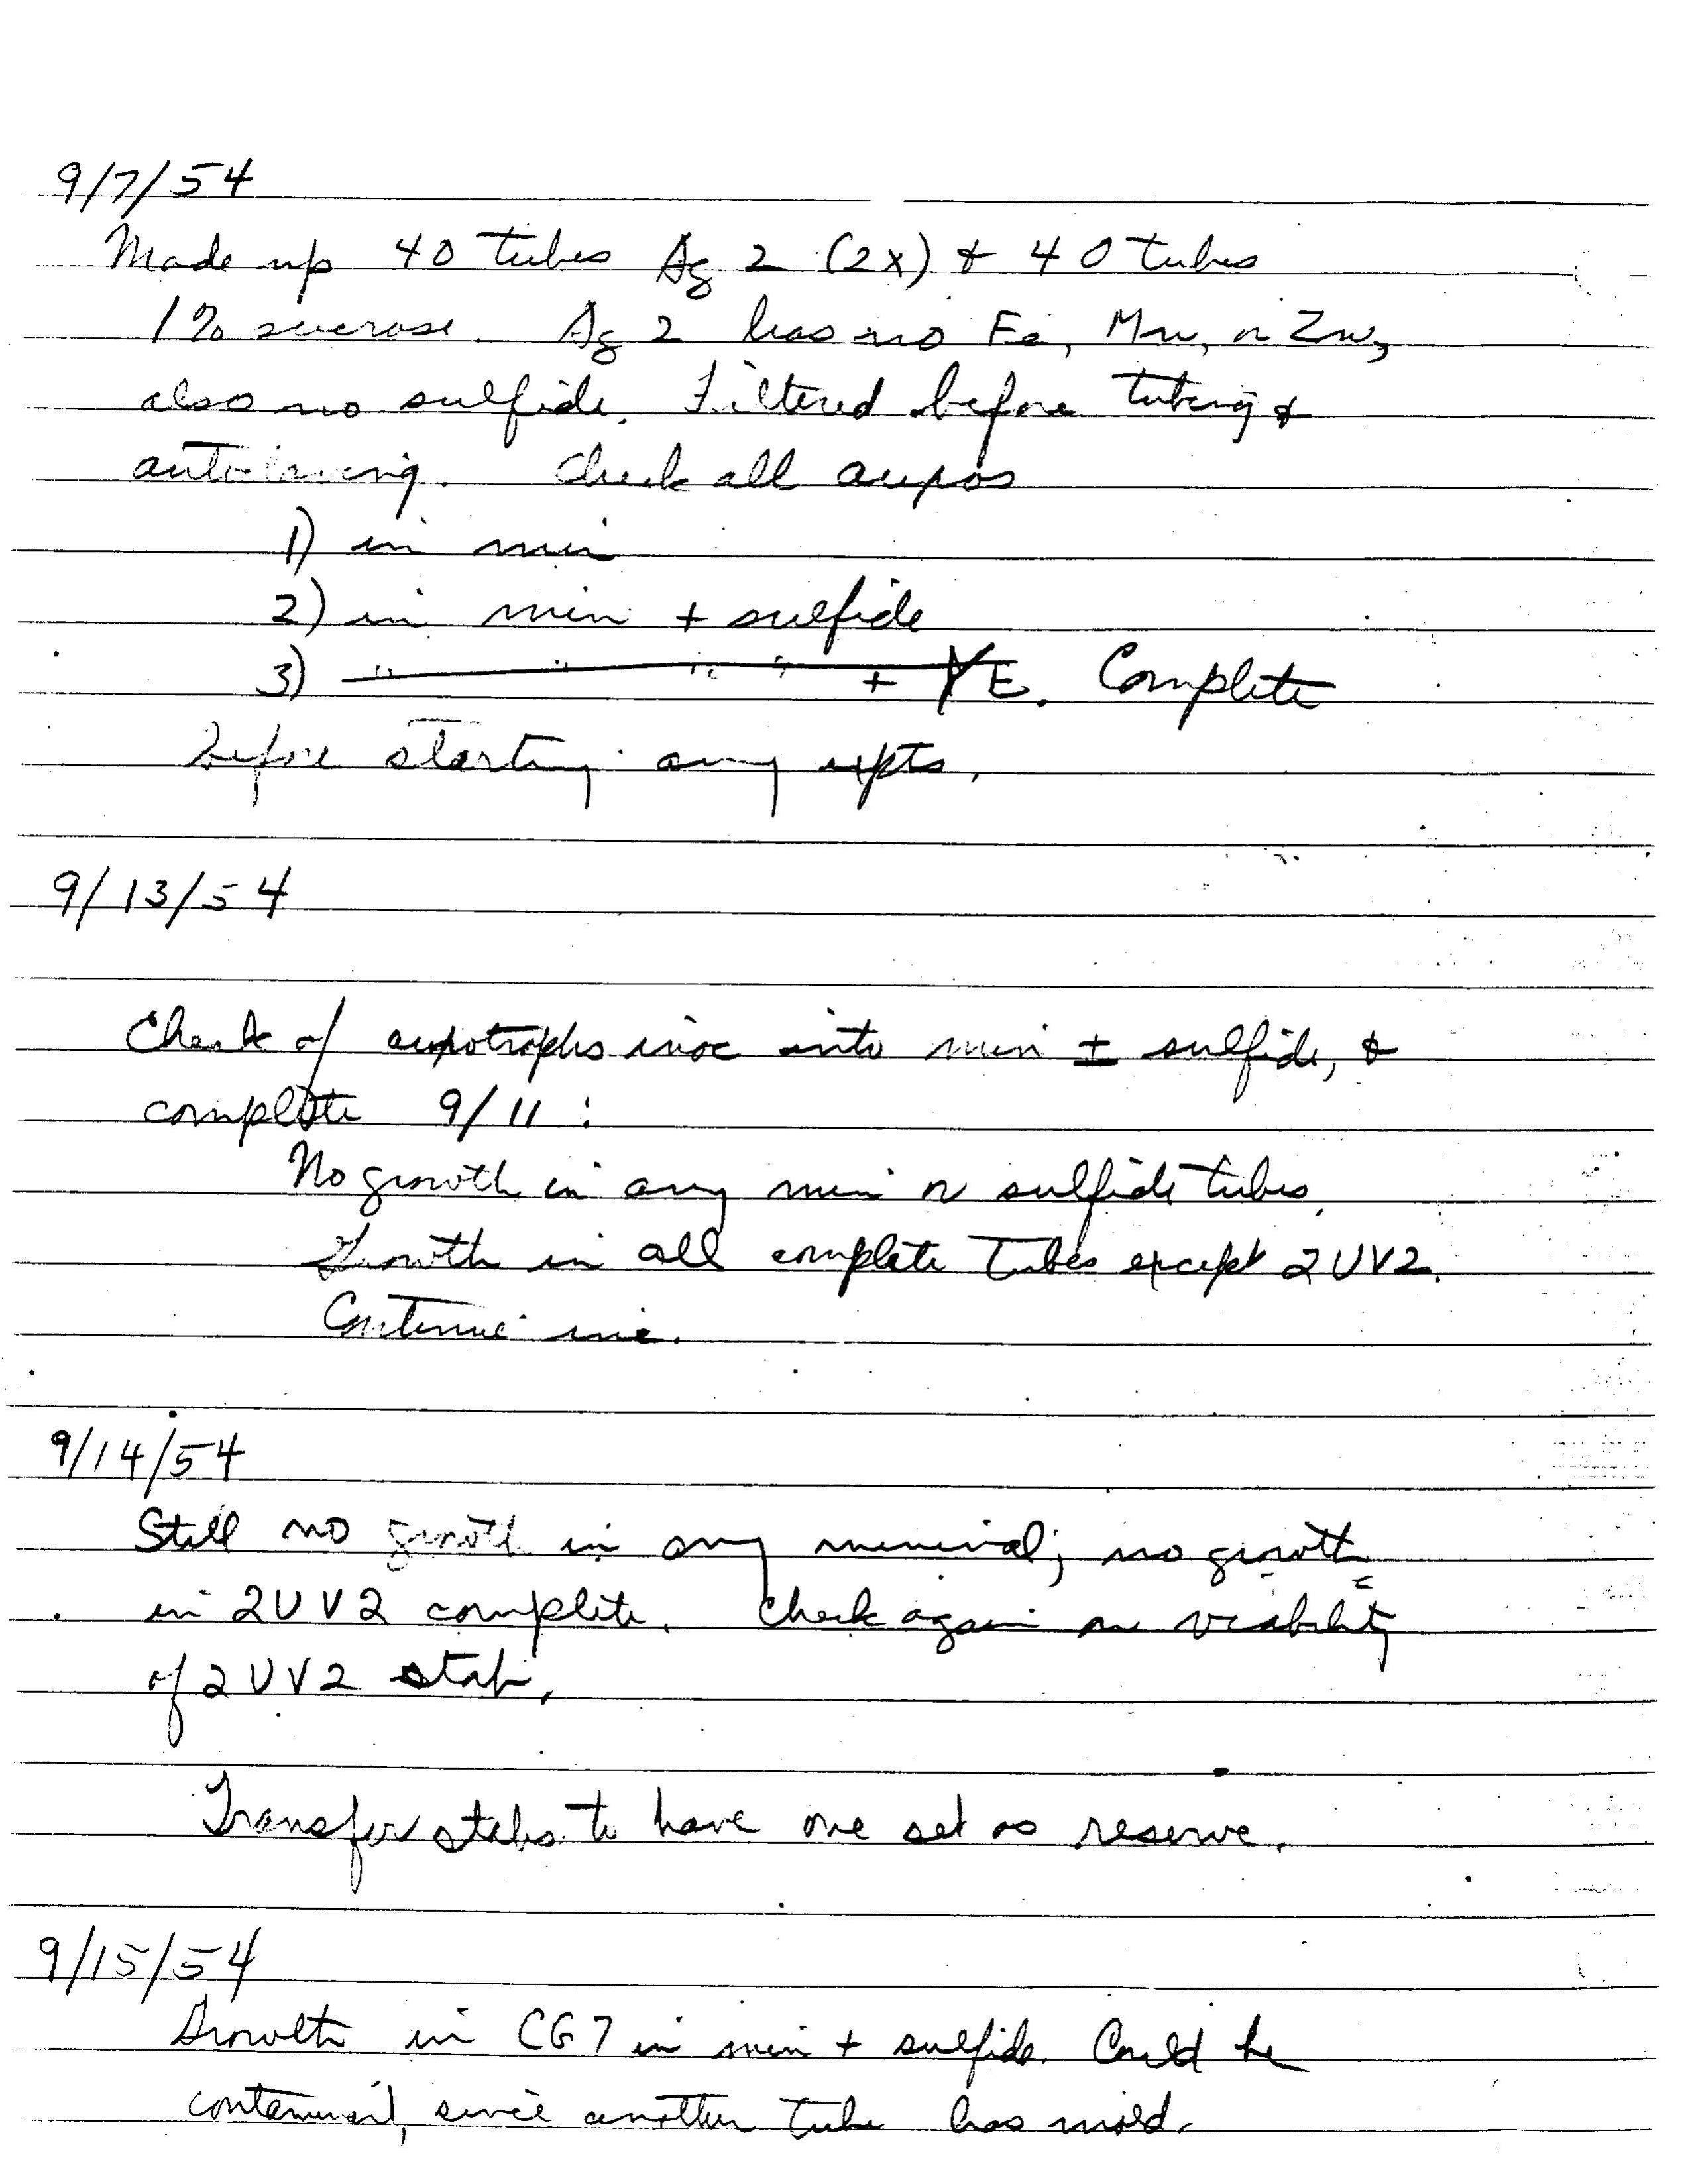 9/7/54
Made up 40 tubes Ag 2 (2x) & 40 tubes
1% sucrose. Ag 2 has no Fe, Mn, or Zn,
also no sulfide. Filtered before tubing &
autoclaving. Check all auxos
1) in min
2) in min + sulfide
3) " " " " + YE. Complete
before starting any expts.
9/13/54
Check of auxotrophs inoc into min ± sulfide, &
complete 9/11:
No growth in any min or sulfide tubes.
Growth in all complete tubes except 2UV2.
Continue inc.
9/14/54
Still no growth in any minimal; no growth
in 2UV2 complete. Check again on viability
of 2UV2 stab.
Transfer stabs to have one set as reserve.
9/15/54
Growth in CG7 in min + sulfide. Could be
contaminant, since another tube has mold.